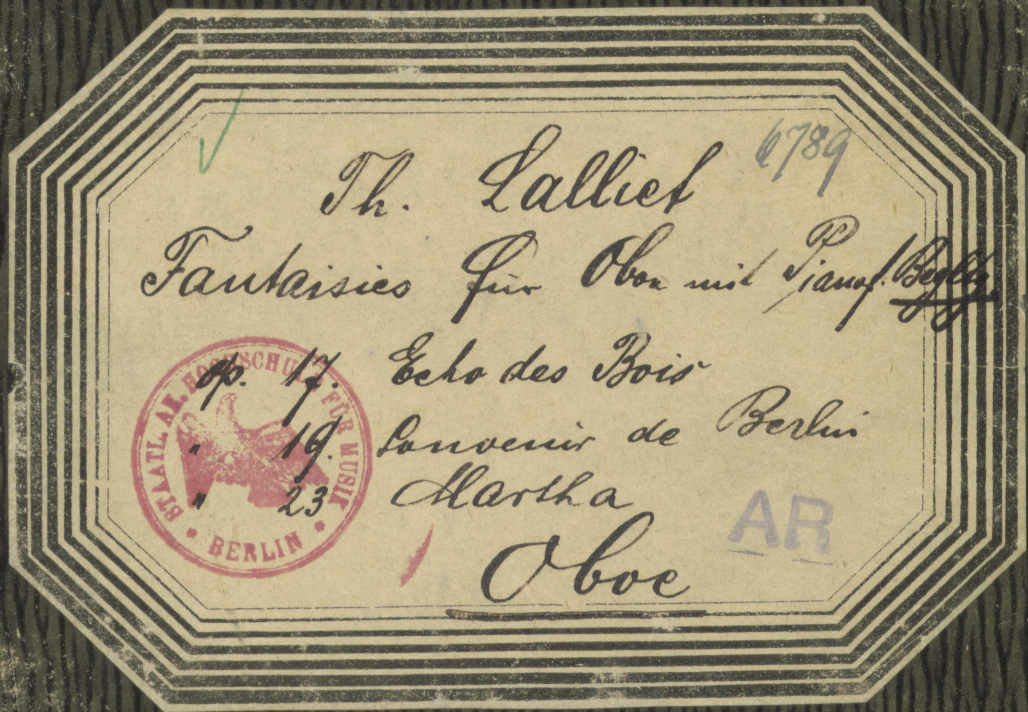 6789
Th. Lalliet
Fantaisies für Oboe mit Pianof. Begltg
op. 17. Echo des Bois
" 19. Souvenir de Berlin
" 23 Martha
Oboe
STAATL. AK. HOCHSCHULE FÜR MUSIK
• BERLIN •
AR